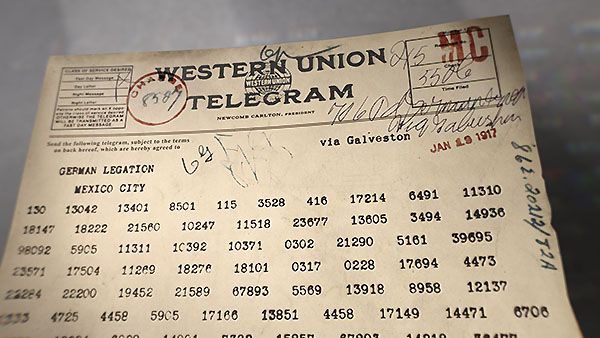 CLASS OF SERVICE DESIRED
Fast Day Message
Day Letter
Night Message
Night Letter
Patrons should mark an X oppo-
site the class of service desired;
OTHERWISE THE TELEGRAM
WILL BE TRANSMITTED AS A
FAST DAY MESSAGE
CHARGE
8587
WESTERN UNION
WESTERN UNION
TELEGRAM
NEWCOMB CARLTON, PRESIDENT
MC
Time Filed
Send the following telegram, subject to the terms
on back hereof, which are hereby agreed to
via Galveston
JAN 19 1917
GERMAN LEGATION
MEXICO CITY
130 13042 13401 8501 115 3528 416 17214 6491 11310
18147 18222 21560 10247 11518 23677 13605 3494 14936
98092 5905 11311 10392 10371 0302 21290 5161 39695
23571 17504 11269 18276 18101 0317 0228 17694 4473
22284 22200 19452 21589 67893 5569 13918 8958 12137
4725 4458 5905 17166 13851 4458 17149 14471 6706